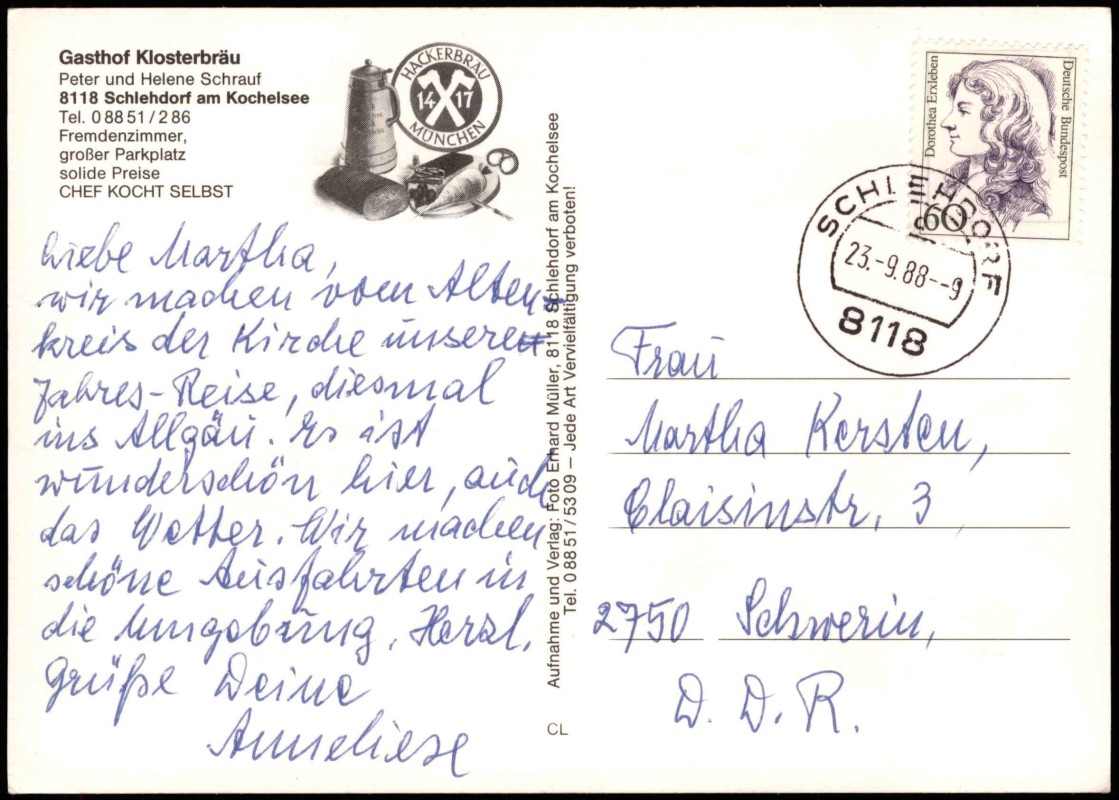 Gasthof Klosterbräu
Peter und Helene Schrauf
8118 Schlehdorf am Kochelsee
Tel. 0 88 51 / 2 86
Fremdenzimmer,
großer Parkplatz
solide Preise
CHEF KOCHT SELBST
HACKERBRÄU
14 17
MÜNCHEN
Liebe Martha,
wir machen vom Alten-
kreis der Kirche unsere
Jahres-Reise, diesmal
ins Allgäu. Es ist
wunderschön hier, auch
das Wetter. Wir machen
schöne Ausfahrten in
die Umgebung. Herzl.
Grüße Deine
Anneliese
Aufnahme und Verlag: Foto Erhard Müller, 8118 Schlehdorf am Kochelsee
Tel. 0 88 51 / 53 09 – Jede Art Vervielfältigung verboten!
CL
Dorothea Erxleben
Deutsche Bundespost
60
SCHLEHDORF
23.-9.88--9
8118
Frau
Martha Kersten,
Claisinstr. 3
2750 Schwerin,
D. D. R.